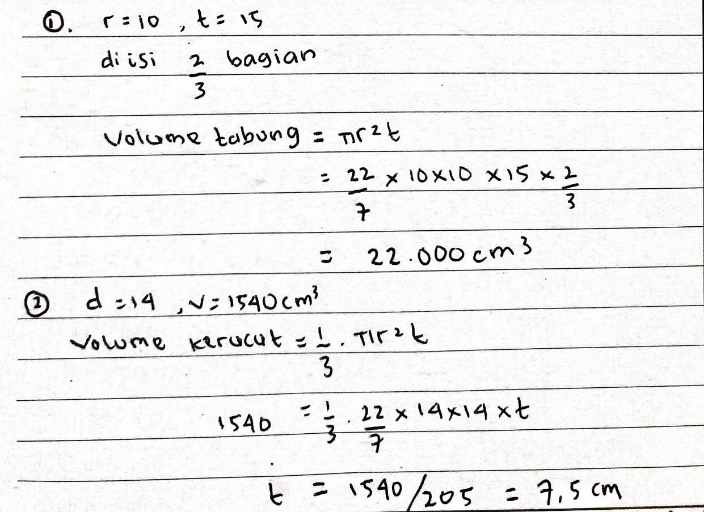 ①. r = 10 , t = 15
di isi 2/3 bagian
Volume tabung = πr²t
= 22/7 x 10x10 x 15 x 2/3
= 22.000 cm³
② d = 14 , v = 1540 cm³
Volume kerucut = 1/3 . πr²t
1540 = 1/3 . 22/7 x 14x14 x t
t = 1540/205 = 7,5 cm